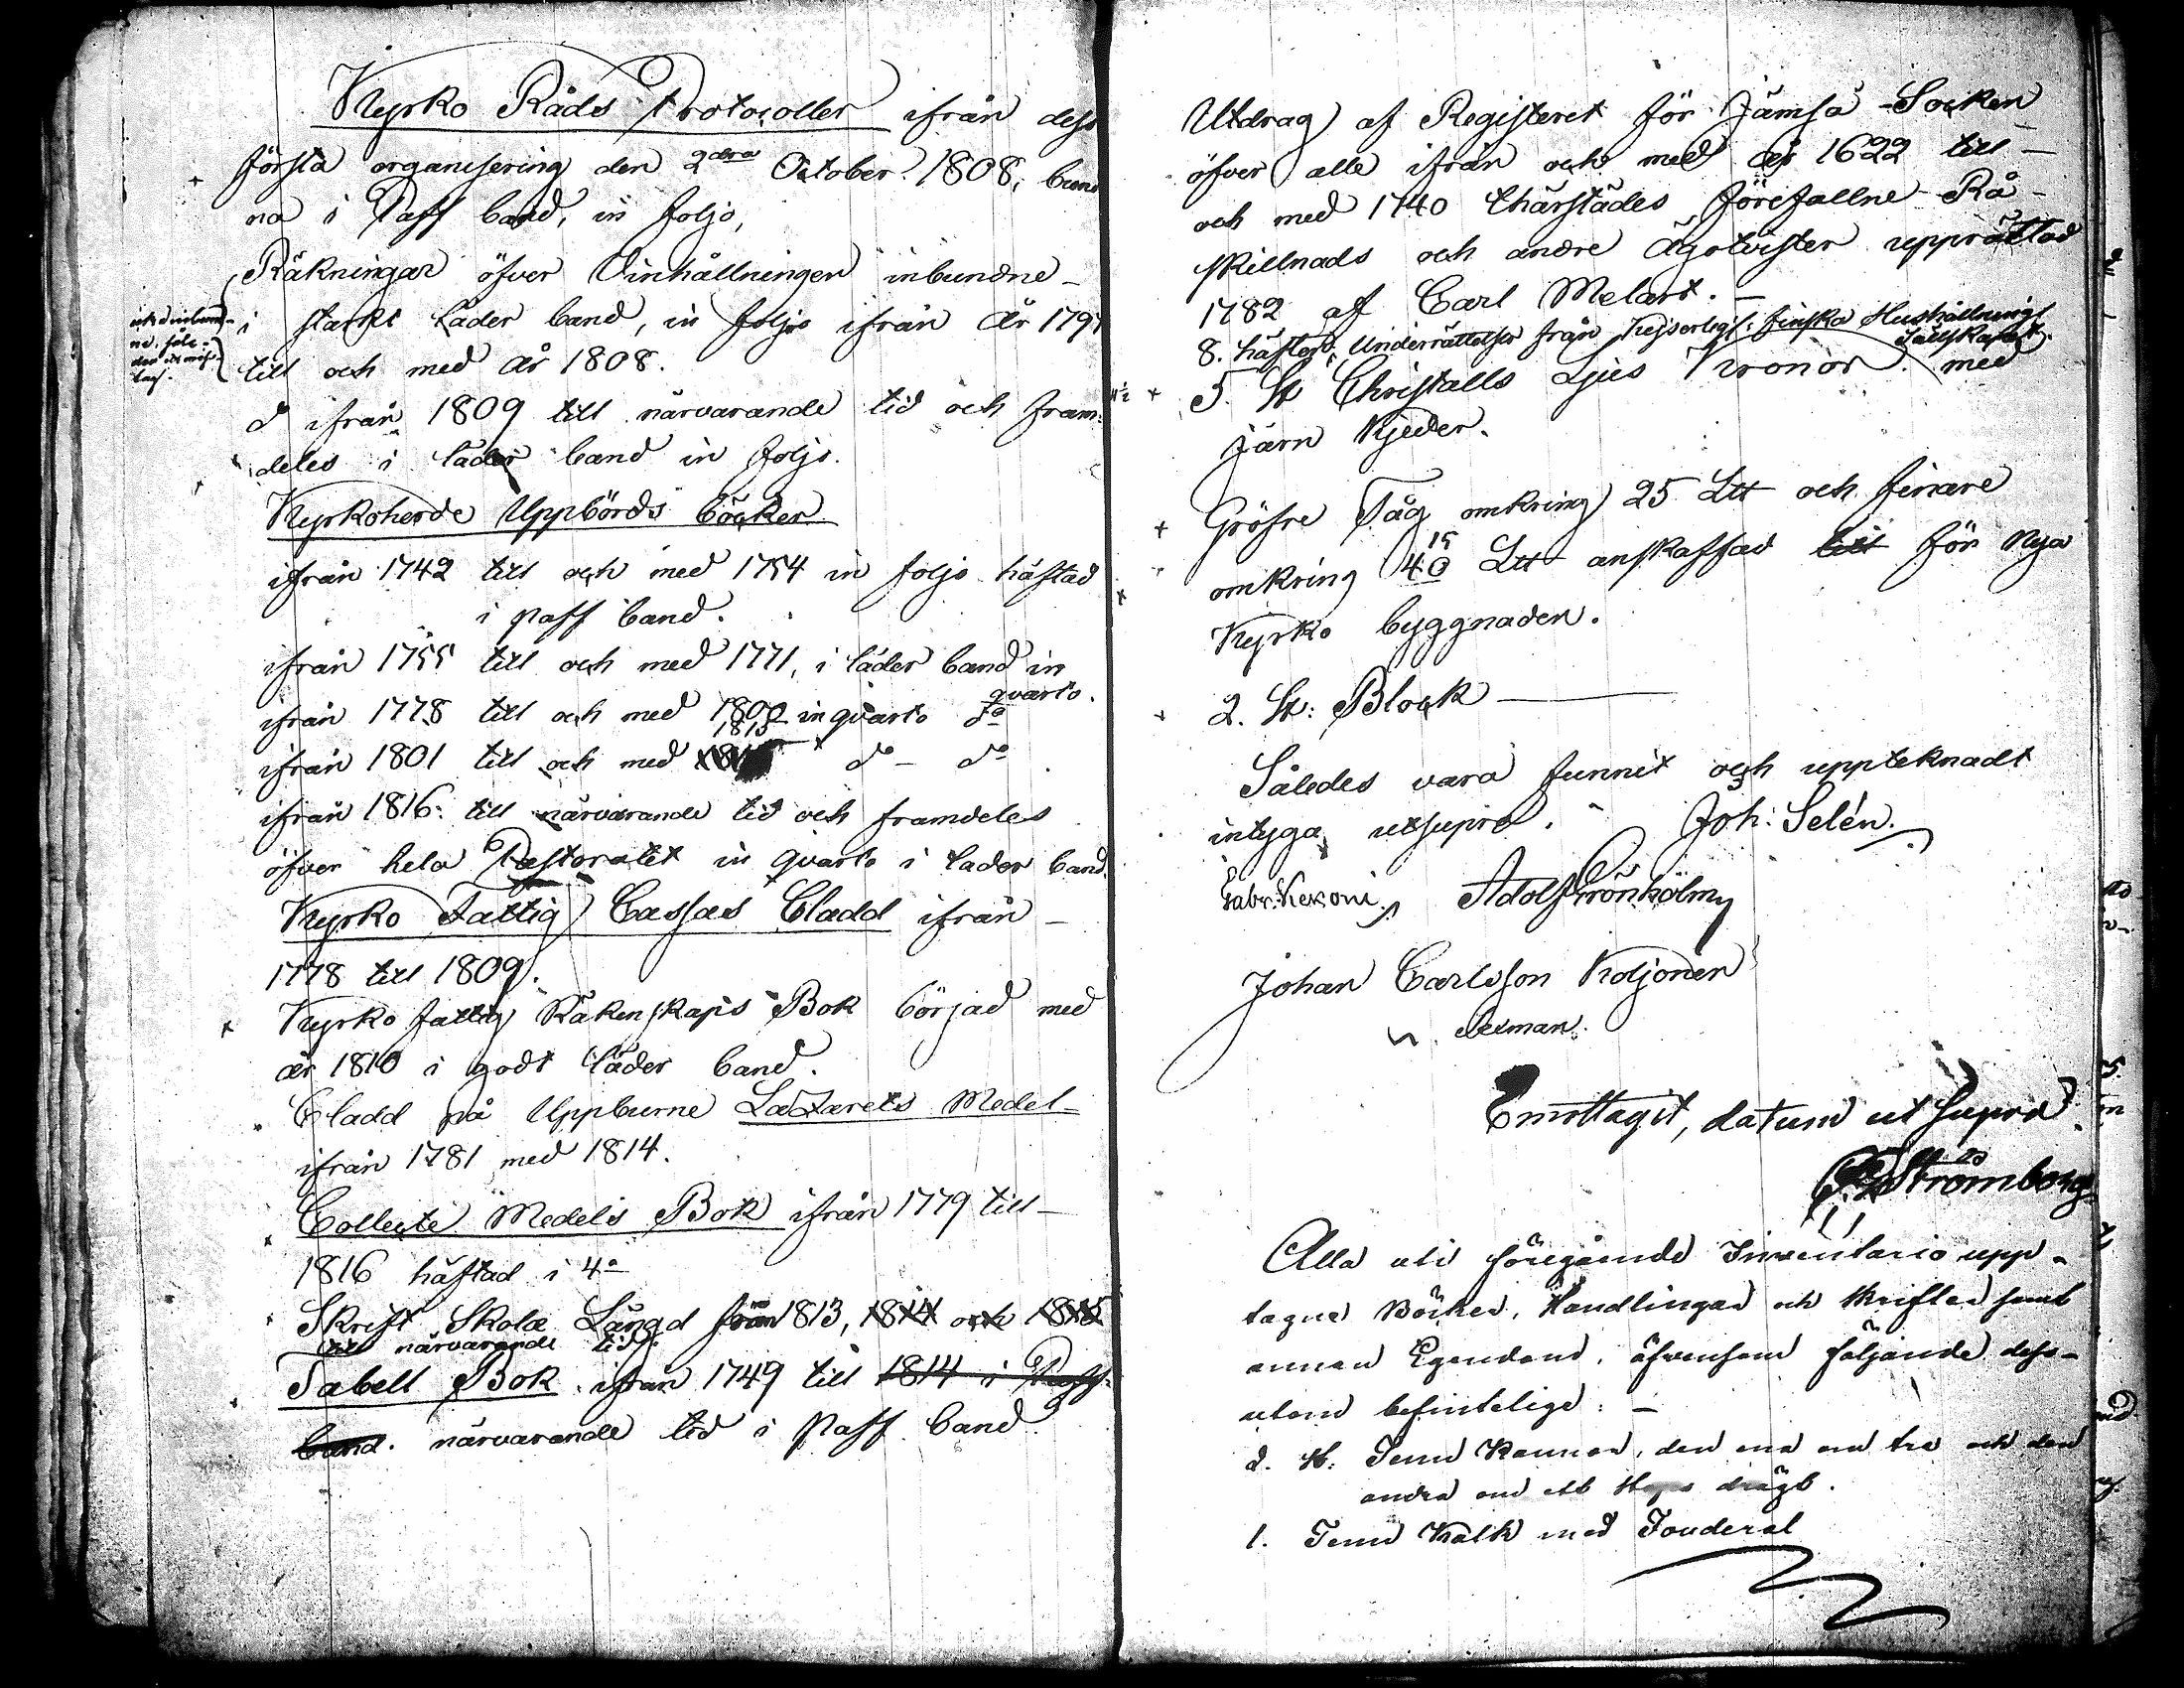 Kyrko Råds Protocoller ifrån dess
första organisering den 2dra October 1808, bund
na i Paff band, in foljo,
Räkningar öfver Vinhållningen inbundne
i starkt läder band, in foljo ifrån År 1797
till och med år 1808.
do ifrån 1809 till närvarande tid och fram:
deles i läder band in foljo.
Kyrkoherde Uppbörds böcker
ifrån 1742 till och med 1754 in foljo häftad
i paff band.
ifrån 1755 till och med 1771, i läder band in
qvarto.
ifrån 1778 till och med 1800 in qvarto do
ifrån 1801 till och med 1815 do - do
ifrån 1816: till närvarande tid och framdeles
öfver hela Pastoratet in qvarto i läder band.
Kyrko Fattig Cassas Cladd ifrån
1778 till 1809.
Kyrko fattig Räkenskaps Bok börjad med
år 1810 i godt läder band.
Cladd på Uppburne Lazarets Medel
ifrån 1781 med 1814.
Collecte Medels Bok ifrån 1779 till
1816 häftad i 4o
Skrift Skole Längd från 1813, 1814 och 1815
till närvarande tid.
Tabell Bok ifrån 1749 till 1814 i Paff
band. närvarande tid i Paff band.
Utdrag af Registeret för Jämsä Socken
öfver alle ifrån och med år 1622 till
och med 1740 thärstädes förefallne Rå-
skillnads och andre Ägotvister upprättad
1782 af Carl Melart.
8. häften, Underrättelser från Kejserlig: finska Hushållnings
Sällskapet.
5. St Christalls Ljus Kronor med
järn Kjeder.
Gröfre Tåg omkring 25 Ltt och finare
omkring 40 15 Ltt anskaffad till för Nya
Kyrko byggnaden.
2. St: Block
Således vara funnit och uppteknadt
intyga utsupra. Joh: Selén.
Gabr: Kexoni. Adolf Grönholm
Johan Carlsson Koljonen
Sexman.
Emottagit, datum ut supra.
Strömborg
Alla uti föregående Inventario upp-
tagne Böcker, Handlingar och skrifter samt
annan Egendom, äfvensom följande dess-
utom befintelige:
2. St: Tenn Kannor, den ena om tre och den
andra om ett Stops drägt.
1. Tenn Kalk med Fouderal